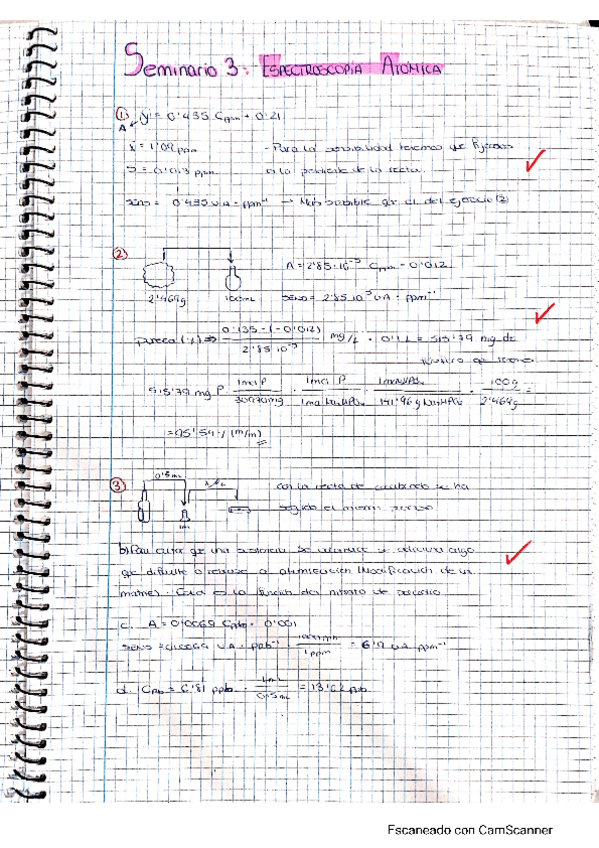 Seminario 3: ESPECTROSCOPÍA ATÓMICA
① y = 0'435 Cppm + 0'21
A
x̄ = 1'09 ppm - Para la sensibilidad tenemos que fijarnos
s = 0'013 ppm en la pendiente de la recta.
SENS = 0'435 UA · ppm⁻¹ → Más sensible que el del ejercicio (2)
②
A = 2'85·10⁻³ Cppm - 0'012
2'469g 100mL SENS = 2'85·10⁻³ UA · ppm⁻¹
pureza (%) ⇒ 0'135 - (-0'012) / 2'85·10⁻³ mg/L · 0'1 L = 515'79 mg de
515'79 mg P · 1mol P / 30970mg · 1mol P · 100g / 2'469g =
= 95'54% (m/m)
③ 0'5mL con la recta de calibrado se ha
seguido el mismo proceso
b) Para evitar que una sustancia se se adiciona algo
que dificulte o reduzca su atomización (Modificación de un
matriz). Esta es la función del nitrato de
c. A = 0'0069 Cppb + 0'001
SENS = 0'0069 UA · ppb⁻¹ · 1000ppb / 1 ppm = 6'9 UA ppm⁻¹
d. CPb = 6'81 ppb · 1mL / 0'5mL = 13'62 ppb
Escaneado con CamScanner